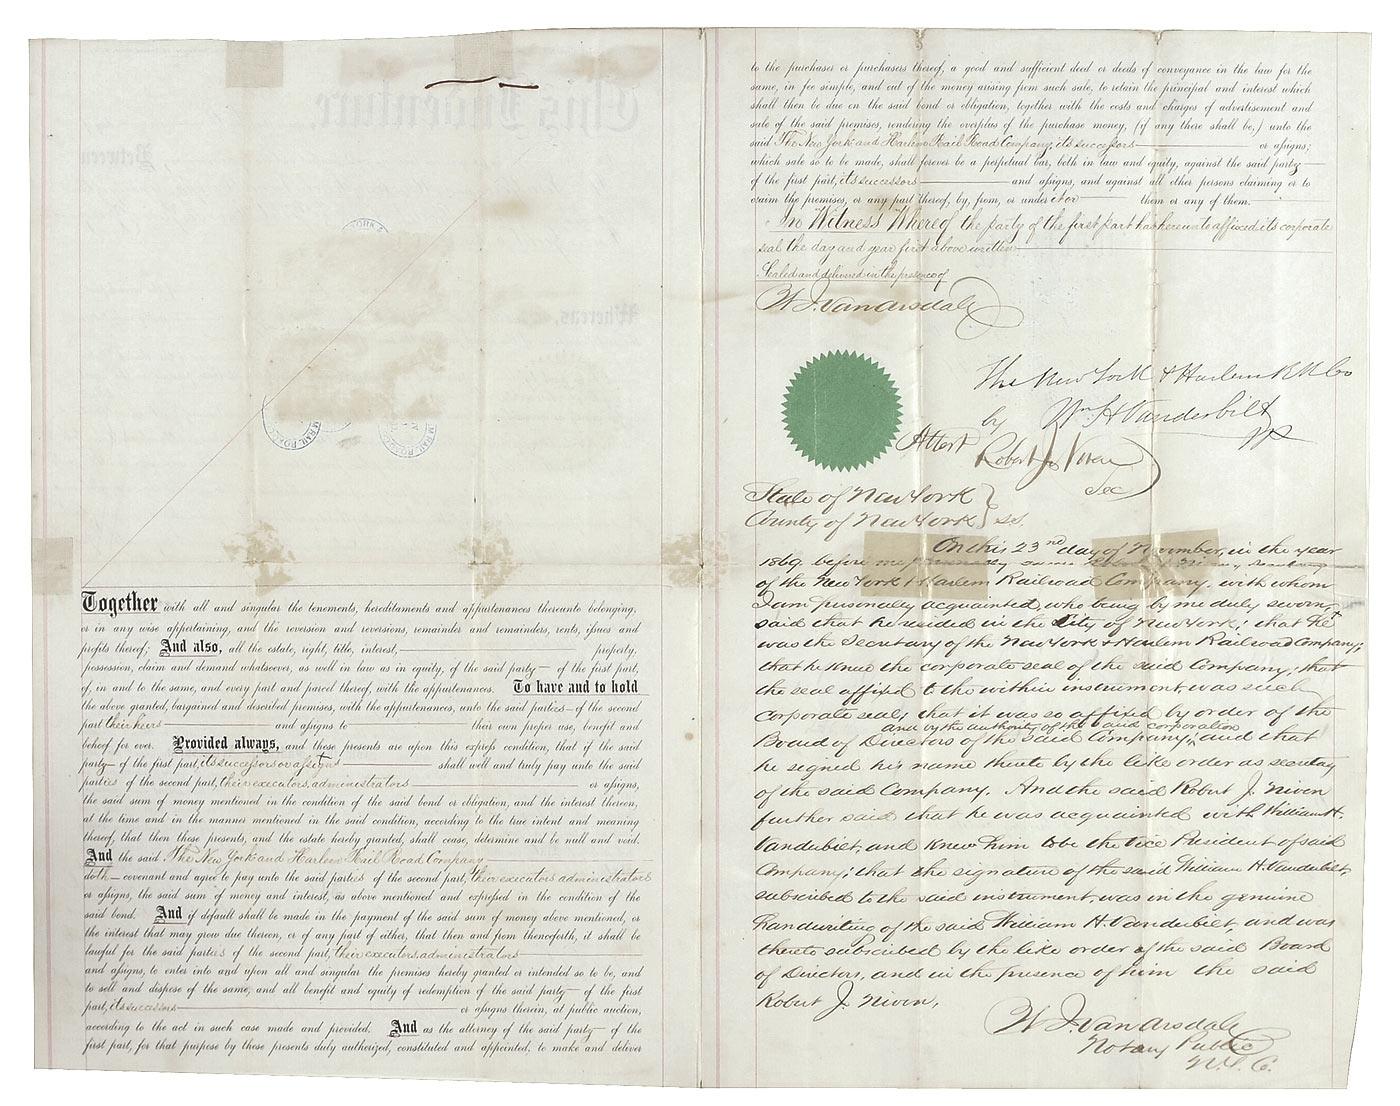 Together with all and singular the tenements, hereditaments and appurtenances thereunto belonging,
or in any wise appertaining, and the reversion and reversions, remainder and remainders, rents, issues and
profits thereof; And also, all the estate, right, title, interest, property,
possession, claim and demand whatsoever, as well in law as in equity, of the said party of the first part,
of, in and to the same, and every part and parcel thereof, with the appurtenances. To have and to hold
the above granted, bargained and described premises, with the appurtenances, unto the said parties of the second
part their heirs and assigns to their own proper use, benefit and
behoof for ever. Provided always, and these presents are upon this express condition, that if the said
party of the first part, its successors or assigns shall well and truly pay unto the said
parties of the second part, their executors, administrators or assigns,
the said sum of money mentioned in the condition of the said bond or obligation, and the interest thereon,
at the time and in the manner mentioned in the said condition, according to the true intent and meaning
thereof, that then these presents, and the estate hereby granted, shall cease, determine and be null and void.
And the said The New York and Harlem Rail Road Company
doth covenant and agree to pay unto the said parties of the second part, their executors administrators
or assigns, the said sum of money and interest, as above mentioned and expressed in the condition of the
said bond. And if default shall be made in the payment of the said sum of money above mentioned, or
the interest that may grow due thereon, or of any part of either, that then and from thenceforth, it shall be
lawful for the said parties of the second part, their executors, administrators
and assigns, to enter into and upon all and singular the premises hereby granted or intended so to be, and
to sell and dispose of the same, and all benefit and equity of redemption of the said party of the first
part, its successors or assigns therein, at public auction,
according to the act in such case made and provided. And as the attorney of the said party of the
first part, for that purpose by these presents duly authorized, constituted and appointed, to make and deliver
to the purchaser or purchasers thereof, a good and sufficient deed or deeds of conveyance in the law for the
same, in fee simple, and out of the money arising from such sale, to retain the principal and interest which
shall then be due on the said bond or obligation, together with the costs and charges of advertisement and
sale of the said premises, rendering the overplus of the purchase money, (if any there shall be,) unto the
said The New York and Harlem Rail Road Company, its successors or assigns;
which sale so to be made, shall forever be a perpetual bar, both in law and equity, against the said party
of the first part, its successors and assigns, and against all other persons claiming or to
claim the premises, or any part thereof, by, from, or under it or them or any of them.
In Witness Whereof the party of the first part has hereunto affixed its corporate
seal the day and year first above written
Sealed and delivered in the presence of
W. J. Van Arsdale
The New York & Harlem R R Co
by Wm H Vanderbilt
VP
Attest Robert J Niven
Sec
State of New York
County of New York } ss.
On this 23nd day of November, in the year
1869 before me personally came Robert J. Niven, Secretary
of the New York & Harlem Railroad Company, with whom
I am personally acquainted, who being by me duly sworn
said that he resided in the City of New York; that he
was the Secretary of the New York & Harlem Railroad Company;
that he knew the corporate seal of the said Company; that
the seal affixed to the within instrument, was such
corporate seal; that it was so affixed by order of the
and by the authority of the said corporation
Board of Directors of the said Company; and that
he signed his name thereto by the like order as secretary
of the said Company. And the said Robert J. Niven
further said that he was acquainted with William H.
Vanderbilt, and knew him to be the Vice President of said
Company; that the signature of the said William H. Vanderbilt,
subscribed to the said instrument, was in the genuine
handwriting of the said William H. Vanderbilt, and was
thereto subscribed by the like order of the said Board
of Directors, and in the presence of him the said
Robert J. Niven,
W. J. Van Arsdale
Notary Public
N. Y. C.